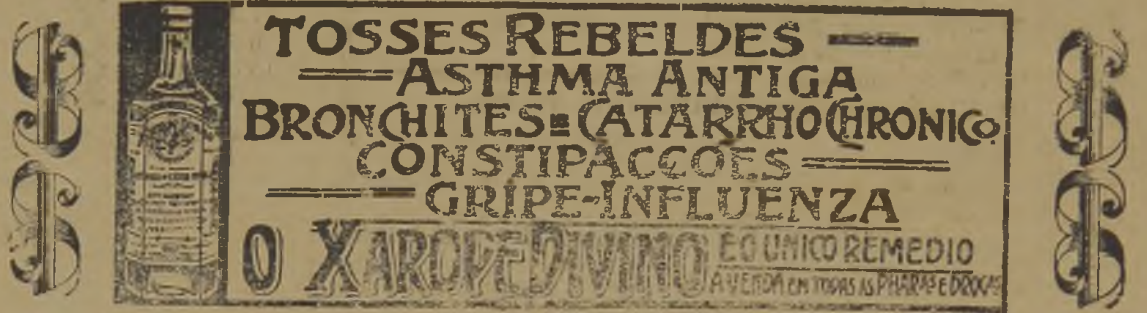 TOSSES REBELDES
ASTHMA ANTIGA
BRONCHITES=CATARRHO CHRONICO.
CONSTIPACCOES
GRIPE-INFLUENZA
O XAROPE DIVINO É O UNICO REMEDIO
A VENDA EM TODAS AS PHARMˢ E DROGˢ